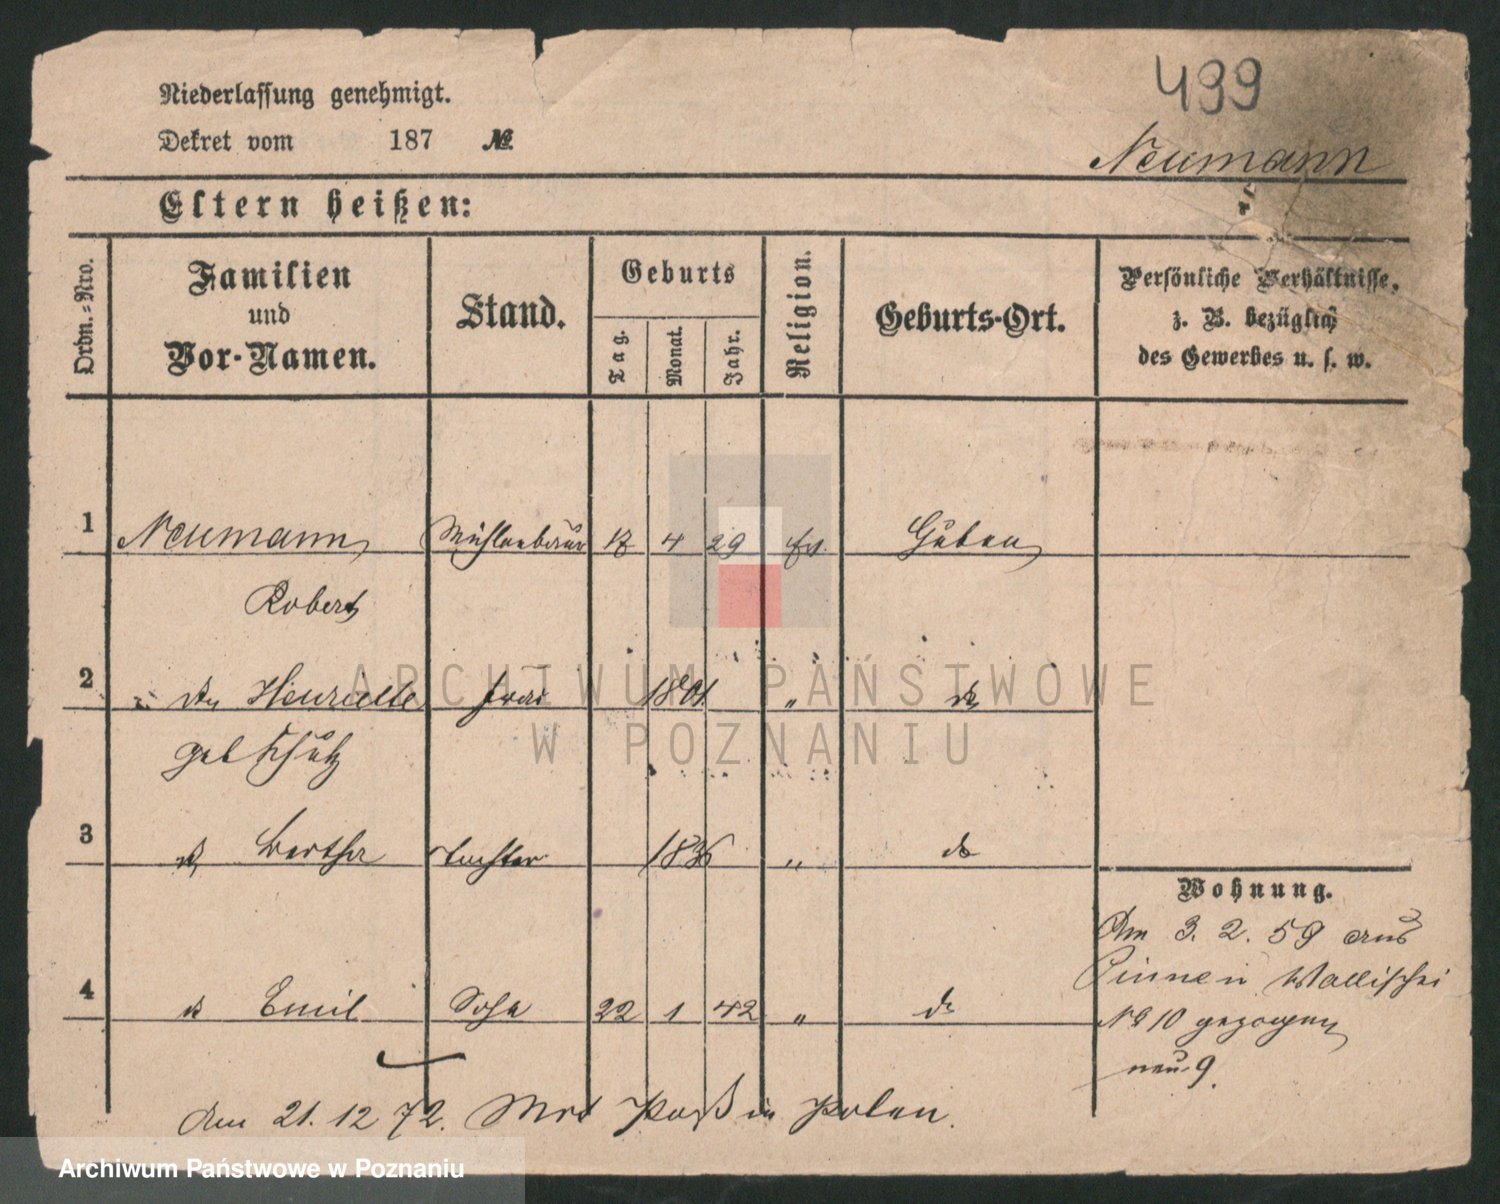 499
Niederlassung genehmigt.
Dekret vom 187 №.
Neumann
Eltern heißen:
Ordn.-Nro.
Familien und Vor-Namen.
Stand.
Geburts
Tag.
Monat.
Jahr.
Religion.
Geburts-Ort.
Persönliche Verhältnisse, z. B. bezüglich des Gewerbes u. s. w.
1 Neumann Mühlenbauer 4 29 Ev. Guben
Robert
2 Henriette Frau 1801 " do
geb Schulz
3 do Bertha Tochter 1836 " do
4 do Emil Sohn 22 1 42 " do
Wohnung.
Am 3. 2. 59 aus
Pinne n Wallischei
N 10 gezogen
neu 9.
Am 21. 12 72. Mit Paß in Polen.
ARCHIWUM PAŃSTWOWE
W POZNANIU
Archiwum Państwowe w Poznaniu